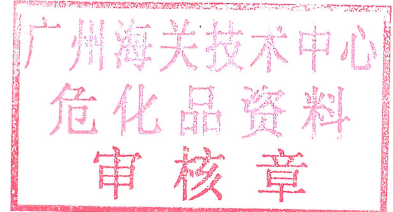 广州海关技术中心
危化品资料
审核章